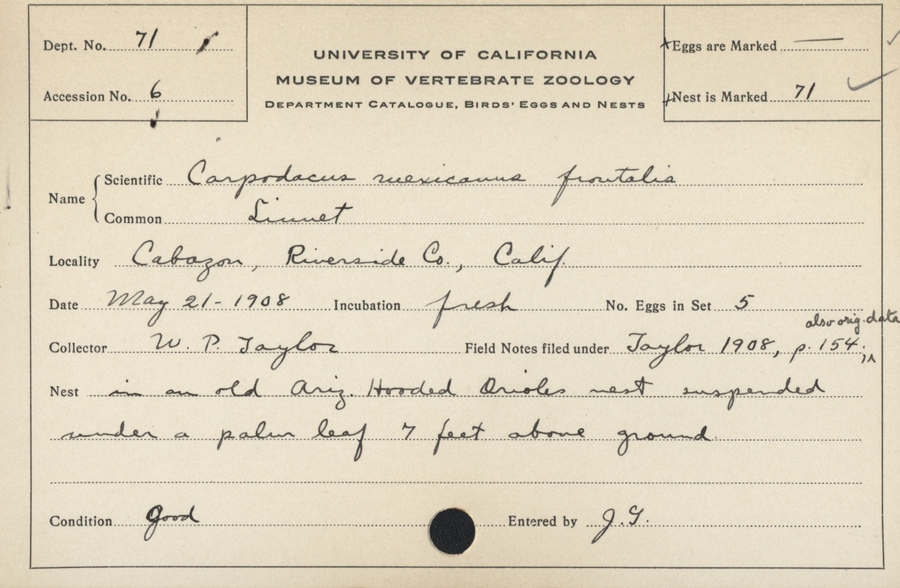 Dept. No. 71
UNIVERSITY OF CALIFORNIA
MUSEUM OF VERTEBRATE ZOOLOGY
DEPARTMENT CATALOGUE, BIRDS' EGGS AND NESTS
Eggs are Marked —
Accession No. 6
Nest is Marked 71
Name { Scientific Carpodacus mexicanus frontalis
Common Linnet
Locality Cabazon, Riverside Co., Calif.
Date May 21-1908 Incubation fresh No. Eggs in Set 5
also orig. data
Collector W. P. Taylor Field Notes filed under Taylor 1908, p. 154;
Nest in an old Ariz. Hooded Orioles nest suspended
under a palm leaf 7 feet above ground.
Condition good Entered by J.G.